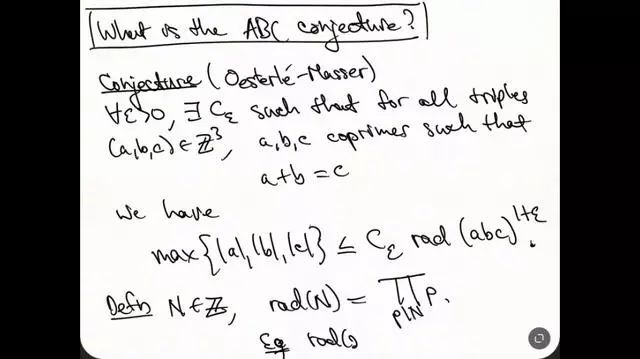 What is the ABC conjecture?
Conjecture (Oesterlé-Masser)
∀ε>0, ∃ Cε such that for all triples
(a,b,c) ∈ ℤ³, a,b,c coprimes such that
a+b=c
We have
max{|a|,|b|,|c|} ≤ Cε rad(abc)^{1+ε}.
Defn N∈ℤ, rad(N) = ∏_{p|N} p.
Eg rad(